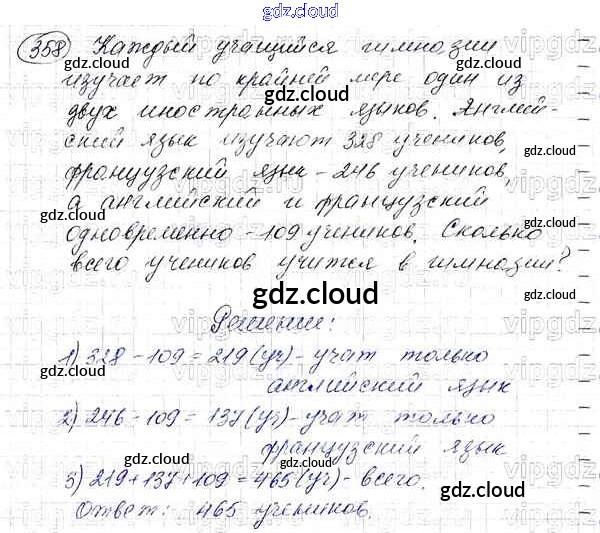 gdz.cloud
358) Каждый учащийся гимназии
изучает по крайней мере один из
двух иностранных языков. Англий-
ский язык изучают 328 учеников,
французский язык - 246 учеников,
а английский и французский
одновременно - 109 учеников. Сколько
всего учеников учится в гимназии?
gdz.cloud
Решение:
1) 328 - 109 = 219 (уч) - учат только
английский язык
2) 246 - 109 = 137 (уч) - учат только
французский язык
3) 219 + 137 + 109 = 465 (уч) - всего.
Ответ: 465 учеников.
gdz.cloud